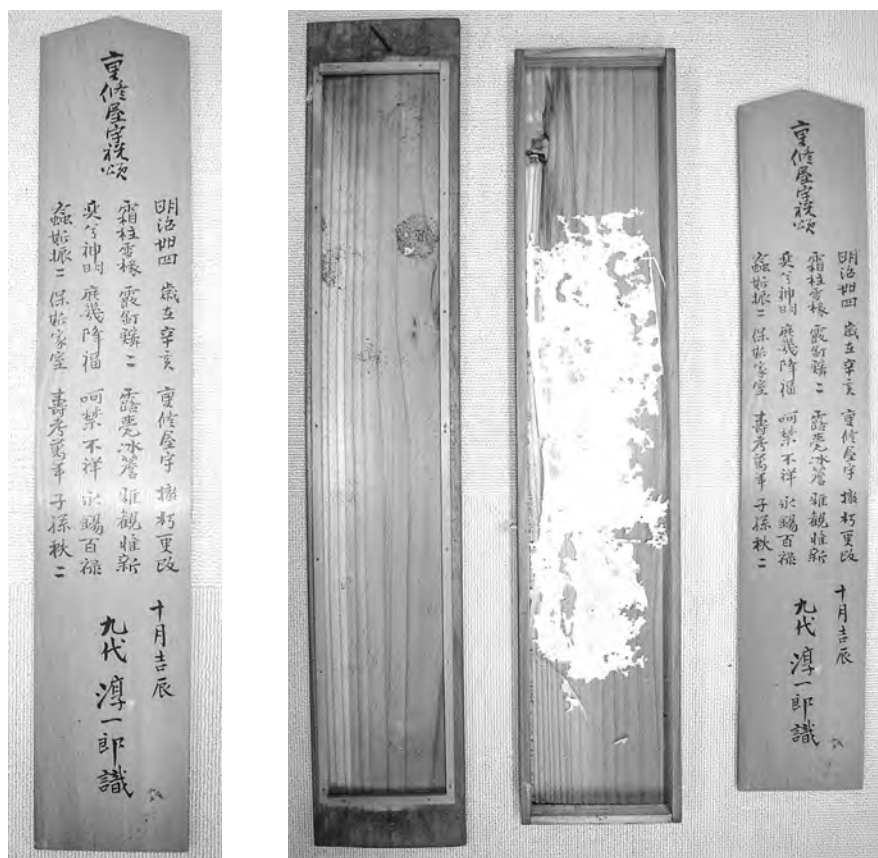 重修屋宇祝頌
明治卌四 歳在辛亥 重修屋宇 撤朽更改
霜柱雪椽 霞釘鱗二 露甍冰簷 雅観惟新
奕兮神明 庶幾降福 呵禁不祥 永錫百禄
螽斯振二 保斯家室 壽考萬年 子孫秩二
十月吉辰
九代 淳一郎 識
重修屋宇祝頌
明治卌四 歳在辛亥 重修屋宇 撤朽更改
霜柱雪椽 霞釘鱗二 露甍冰簷 雅観惟新
奕兮神明 庶幾降福 呵禁不祥 永錫百禄
螽斯振二 保斯家室 壽考萬年 子孫秩二
十月吉辰
九代 淳一郎 識